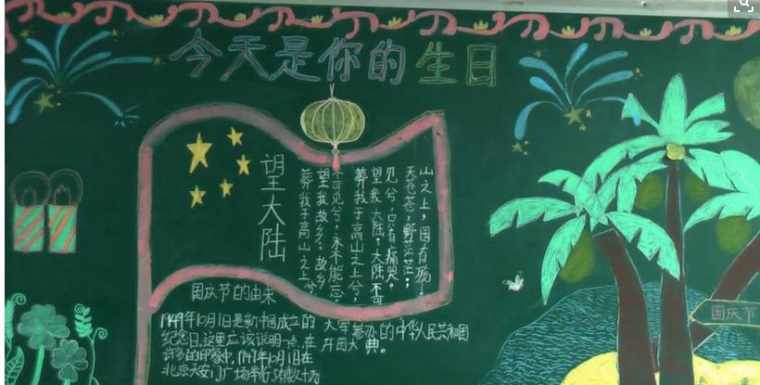 今天是你的生日
望大陆
葬我于高山之上兮
望我故乡；故乡
不可见兮，永不能忘
葬我于高山之上兮，
望我大陆，大陆不可
见兮，只有痛哭，
天苍苍，野茫茫；
山之上，国有殇
国庆节的由来
1949年10月1日是新中国成立的
纪念日，这里应该说明一点，在
许多的印象中，1949年10月1日在
北京天安门广场举行 数十万
的中华人民共和国
开国大典。
国庆节